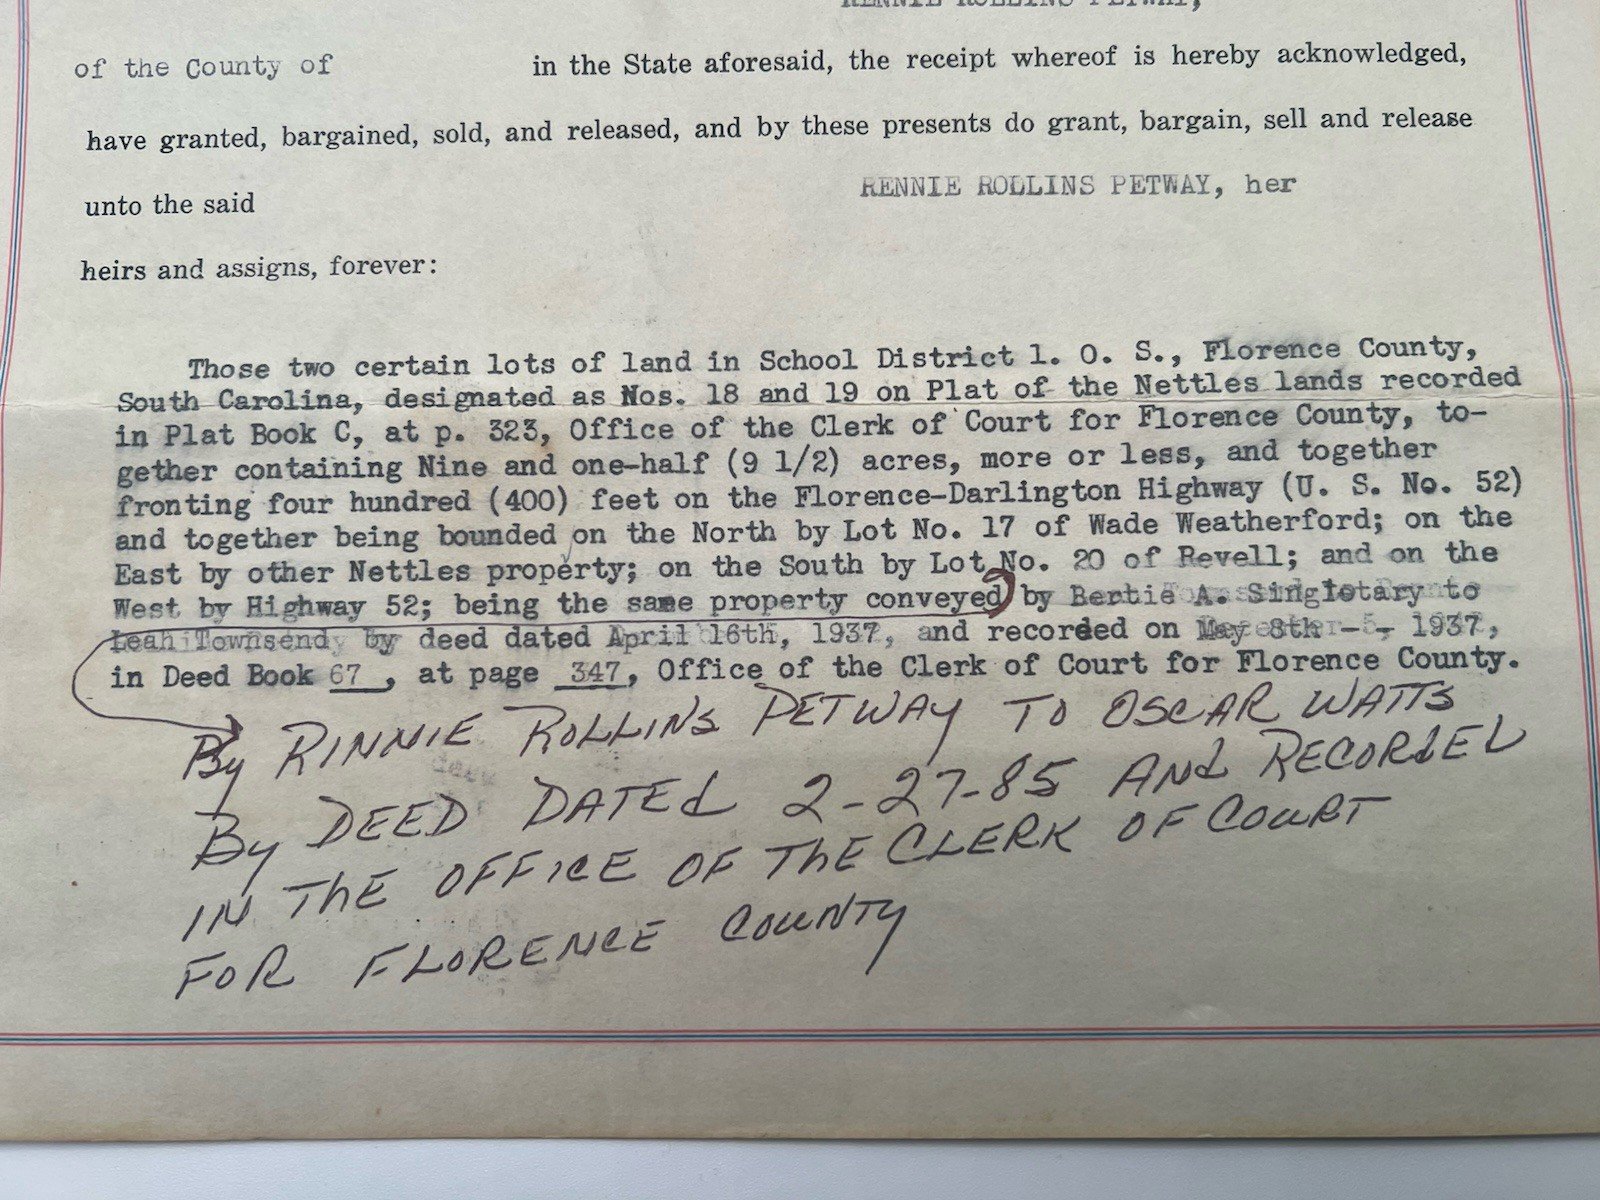 RENNIE ROLLINS PETWAY,
of the County of in the State aforesaid, the receipt whereof is hereby acknowledged,
have granted, bargained, sold, and released, and by these presents do grant, bargain, sell and release
unto the said RENNIE ROLLINS PETWAY, her
heirs and assigns, forever:
Those two certain lots of land in School District 1. O. S., Florence County,
South Carolina, designated as Nos. 18 and 19 on Plat of the Nettles lands recorded
in Plat Book C, at p. 323, Office of the Clerk of Court for Florence County, to-
gether containing Nine and one-half (9 1/2) acres, more or less, and together
fronting four hundred (400) feet on the Florence-Darlington Highway (U. S. No. 52)
and together being bounded on the North by Lot No. 17 of Wade Weatherford; on the
East by other Nettles property; on the South by Lot No. 20 of Revell; and on the
West by Highway 52; being the same property conveyed by Bertie A. Singletary to
Leah Townsend by deed dated April 16th, 1937, and recorded on May 8th -- 1937,
in Deed Book 67, at page 347, Office of the Clerk of Court for Florence County.
By RINNIE ROLLINS PETWAY TO OSCAR WATTS
By DEED DATEd 2-27-85 ANd RECORdEd
IN ThE OFFICE OF ThE CLERK OF COURT
FOR FLORENCE COUNTY